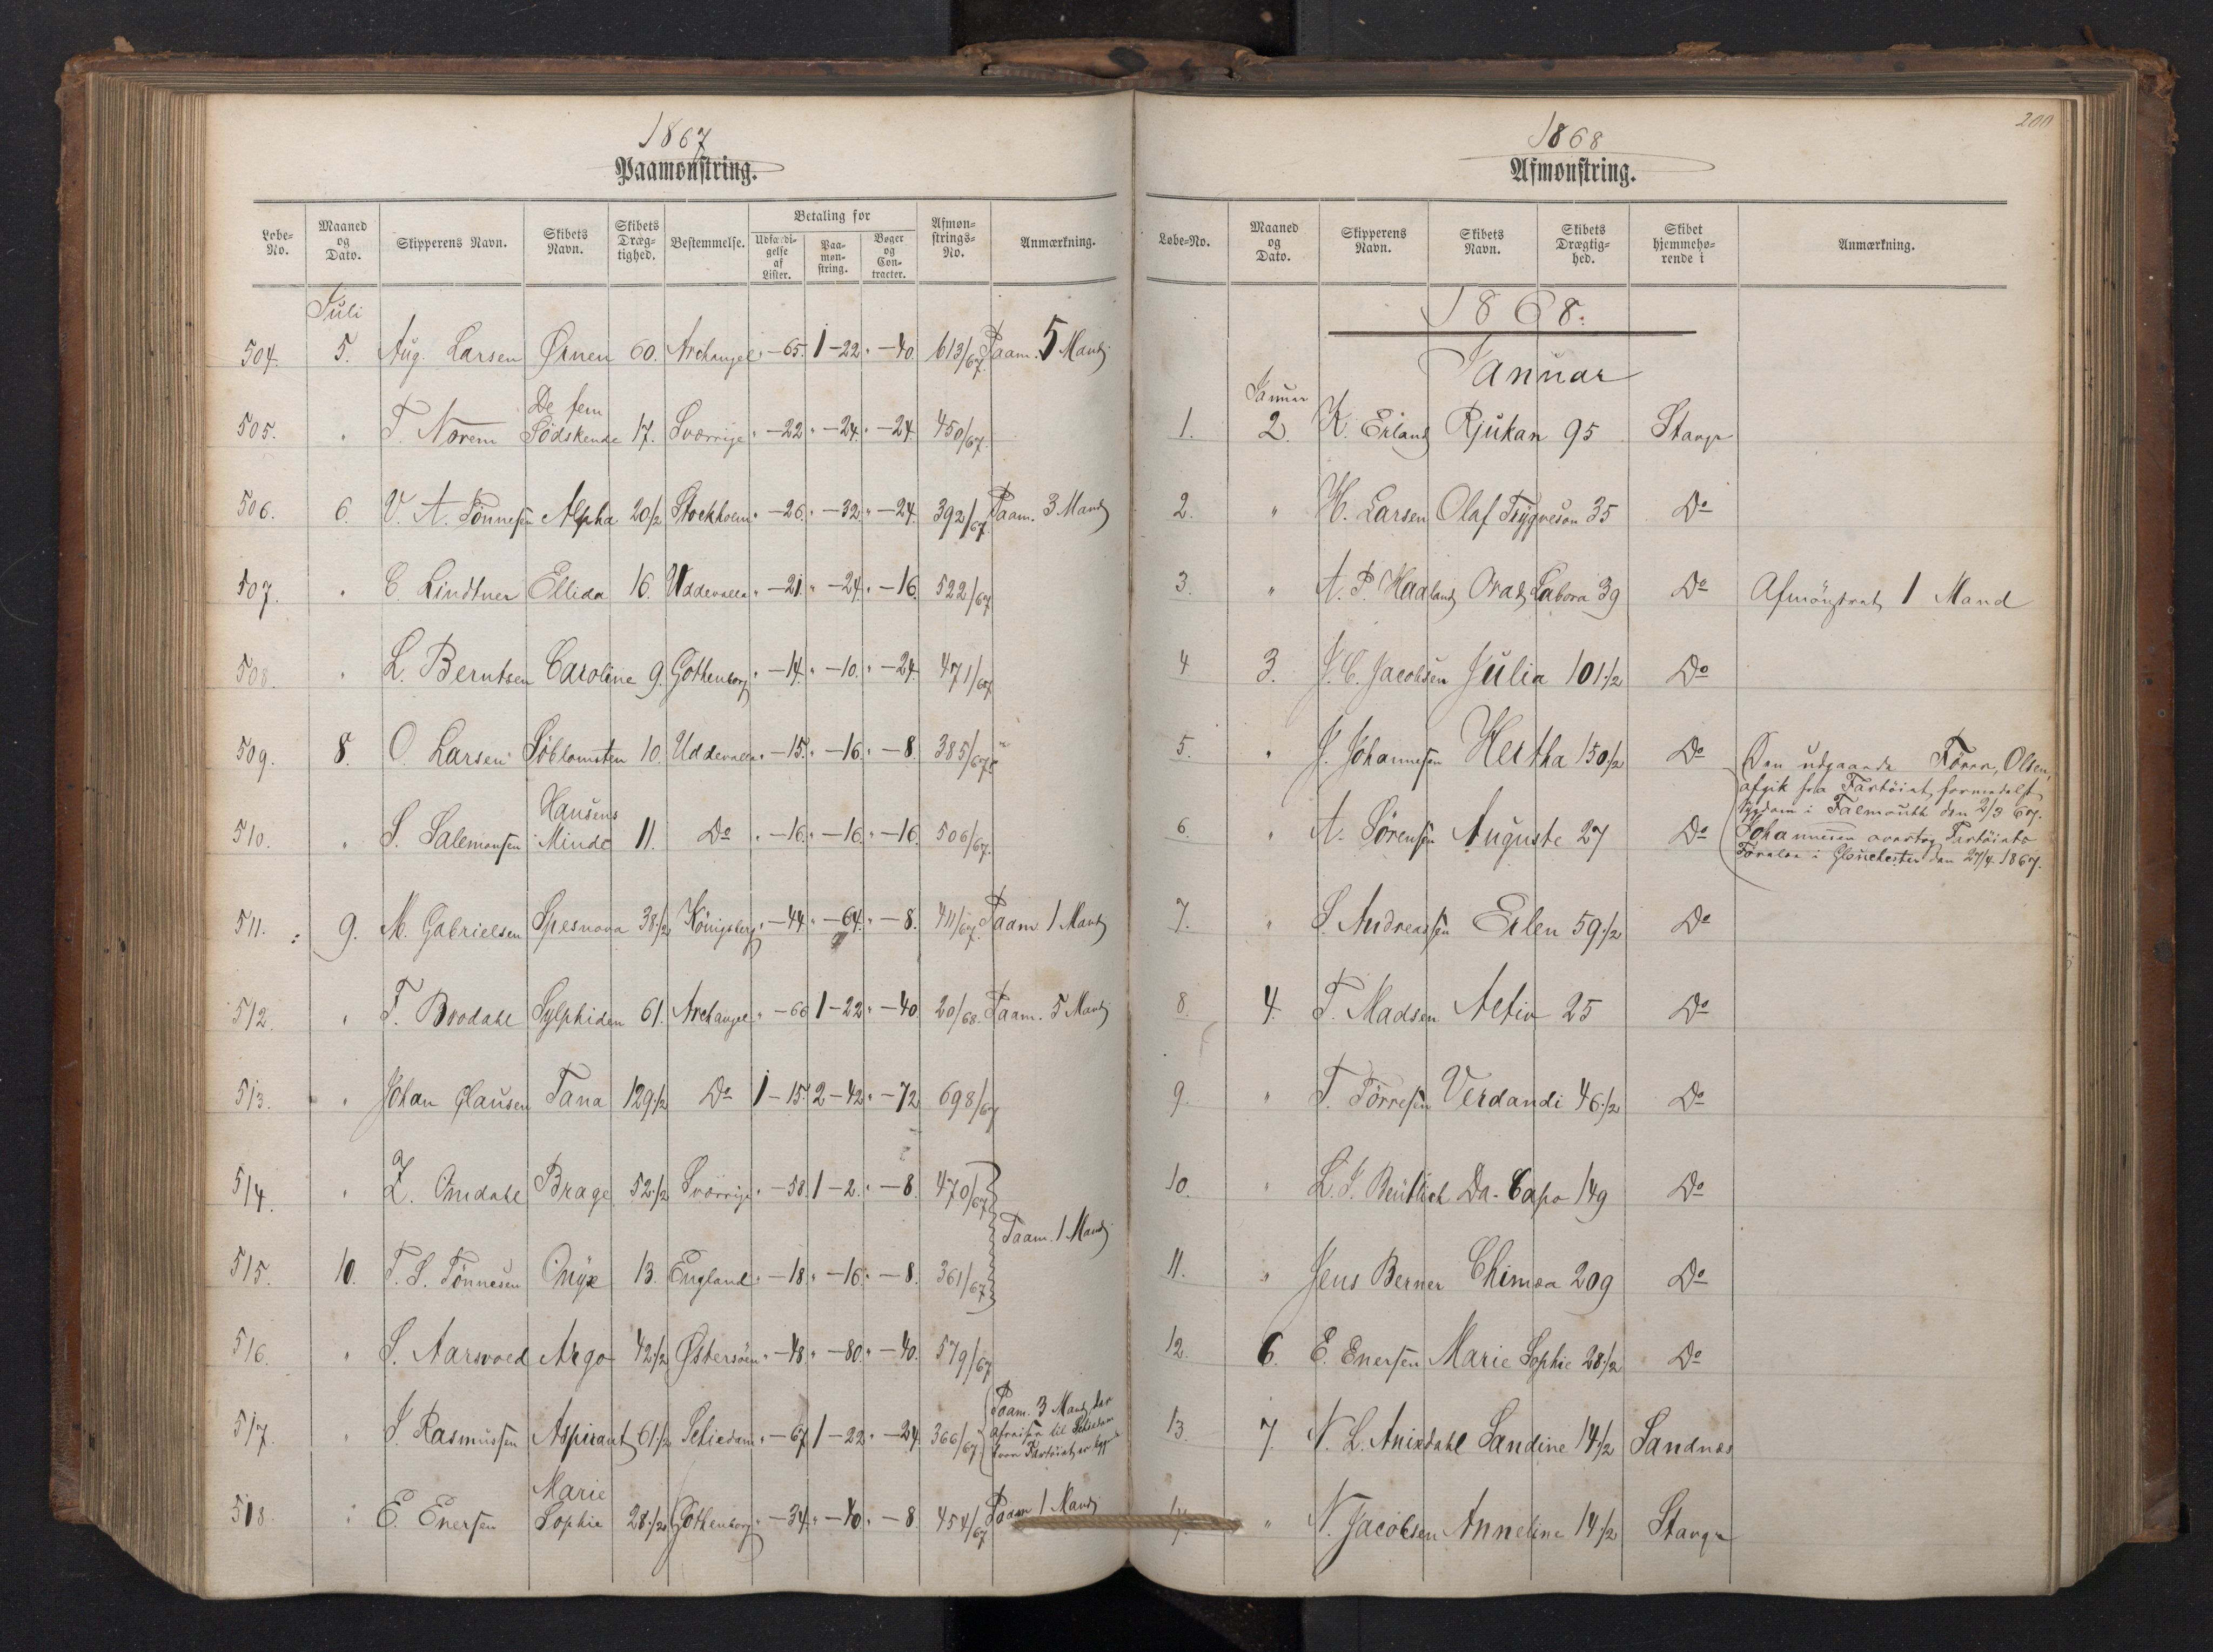 1867
Paamønstring.
Løbe-No. Maaned og Dato. Skipperens Navn. Skibets Navn. Skibets Dræg-tighed. Bestemmelse. Betaling for Udfærdi-gelse af Lister. Paa-møn-string. Bøger og Con-tracter. Afmøn-strings-No. Anmærkning.
Juli
504. 5. Aug. Larsen Ørnen 60. Archangel " -65. 1 -22 " -40. 613/67. Paam. 5 Mand
De fem
505. " T. Norem Södskende 17. Sverrige " -22 " -24. " -24 450/67.
506. 6. V. A. Tönnesen Alpha 20 1/2 Stockholm " -26. " -32. " -24. 392/67. Paam. 3 Mand
507. " C. Lindtner Ellida 16. Uddevalla " -21. " -24. " -16. 522/67
508. " L. Berntsen Caroline 9. Gothenborg " -14. " -10. " -24. 471/67
509. 8. O. Larsen Söblomsten 10. Uddevalla " -15. " -16. " -8. 385/67
Hansens
510. " S. Salemonsen Minde 11. Do " -16. " -16. " -16. 506/67.
511. 9. M. Gabrielsen Spesnova 38 1/2 Königsberg " -44. " -64. " -8. 411/67. Paam. 1 Mand
512. " T. Brodahl Sylphiden 61. Archangel " -66 1 -22 " -40 20/68. Paam. 5 Mand
513. " Johan Clausen Tana 129 1/2 Do 1 -15. 2 -42 " -72 698/67
514. " Z. Omdahl Brage 52 1/2 Sverrige " -58. 1 -2. " -8. 470/67
Paam. 1 Mand
515. 10. T. S. Tönnesen Onyx 13. England " -18. " -16. " -8. 361/67
516. " S. Aarsvoed Argo 42 1/2 Østersöen " -48. " -80. " -40. 579/67
Paam. 3 Mand, der
517. " J. Rasmussen Aspirant 61 1/2 Schiedam " -67 1 -22 " -24. 366/67. afreiser til Schiedam
hvor Fartöiet er
Marie
518. " E. Enersen Sophie 28 1/2 Gothenborg " -34. " -40. " -8 454/67 Paam 1 Mand
200
1868
Afmønstring.
Løbe-No. Maaned og Dato. Skipperens Navn. Skibets Navn. Skibets Drægtig-hed. Skibet hjemmehø-rende i Anmærkning.
1868.
Januar
Januar
1. 2. K. Eiland Rjukan 95 Stavgr
2. " H. Larsen Olaf Trygveson 35 Do
3. " A. P. Haaland Ora & Labora 39 Do Afmönstret 1 Mand
4 3. J. C. Jacobsen Julia 101 1/2 Do
5. " J. Johannesen Hertha 150 1/2 Do Den udgaaende Förer, Olsen,
afgik fra Fartöiet formedelst
Sygdom i Falmouth den 2/3 67.
6. " A. Sörensen Auguste 27 Do Johannesen overtog Fartöiets
Förelse i Glouchester den 27/4. 1867.
7. " S. Andreassen Erlen 59 1/2 Do
8. 4. T. Madsen Activ 25 Do
9. " T. Törresen Verdandi 46 1/2 Do
10. " L. J. Beütlich Da-Capo 149 Do
11. " Jens Berner Chimæa 209 Do
12. 6. E. Enersen Marie Sophie 28 1/2 Do
13. 7. N. L. Anixdahl Sandine 14 1/2 Sandnæs
14. " N. Jacobsen Anneline 14 1/2 Stavgr